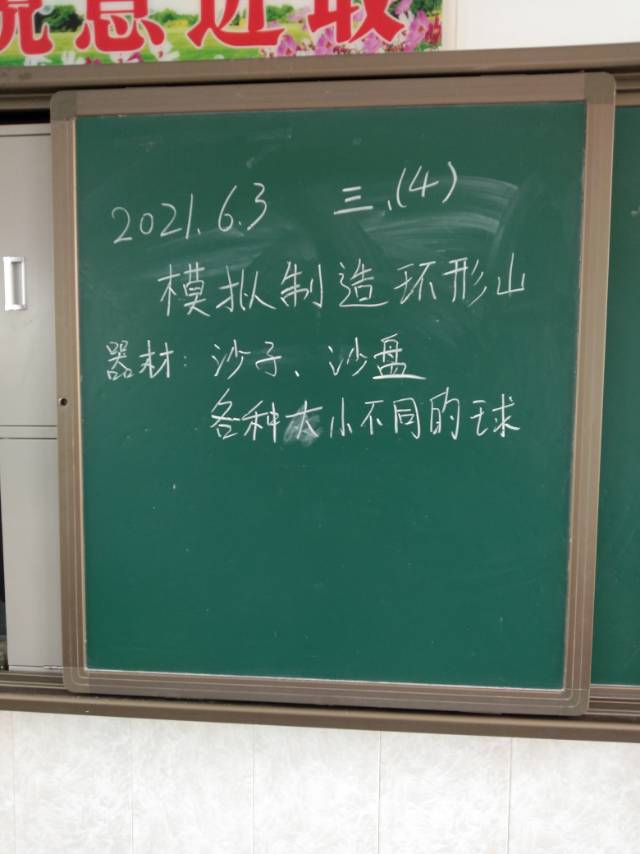 锐意进取
2021.6.3 三、(4)
模拟制造环形山
器材：沙子、沙盘
各种大小不同的球